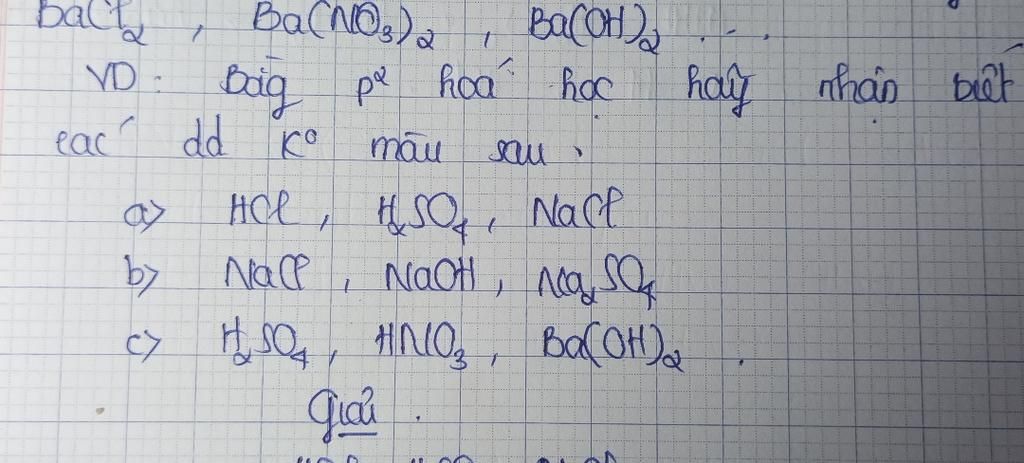 BaCl2 , Ba(NO3)2 , Ba(OH)2 ...
VD: Bằg p2 hoá học hãy nhận biết
các dd Ko màu sau :
a) HCl , H2SO4 , NaCl
b) NaCl , NaOH , Na2SO4
c) H2SO4 , HNO3 , Ba(OH)2 .
Giải .